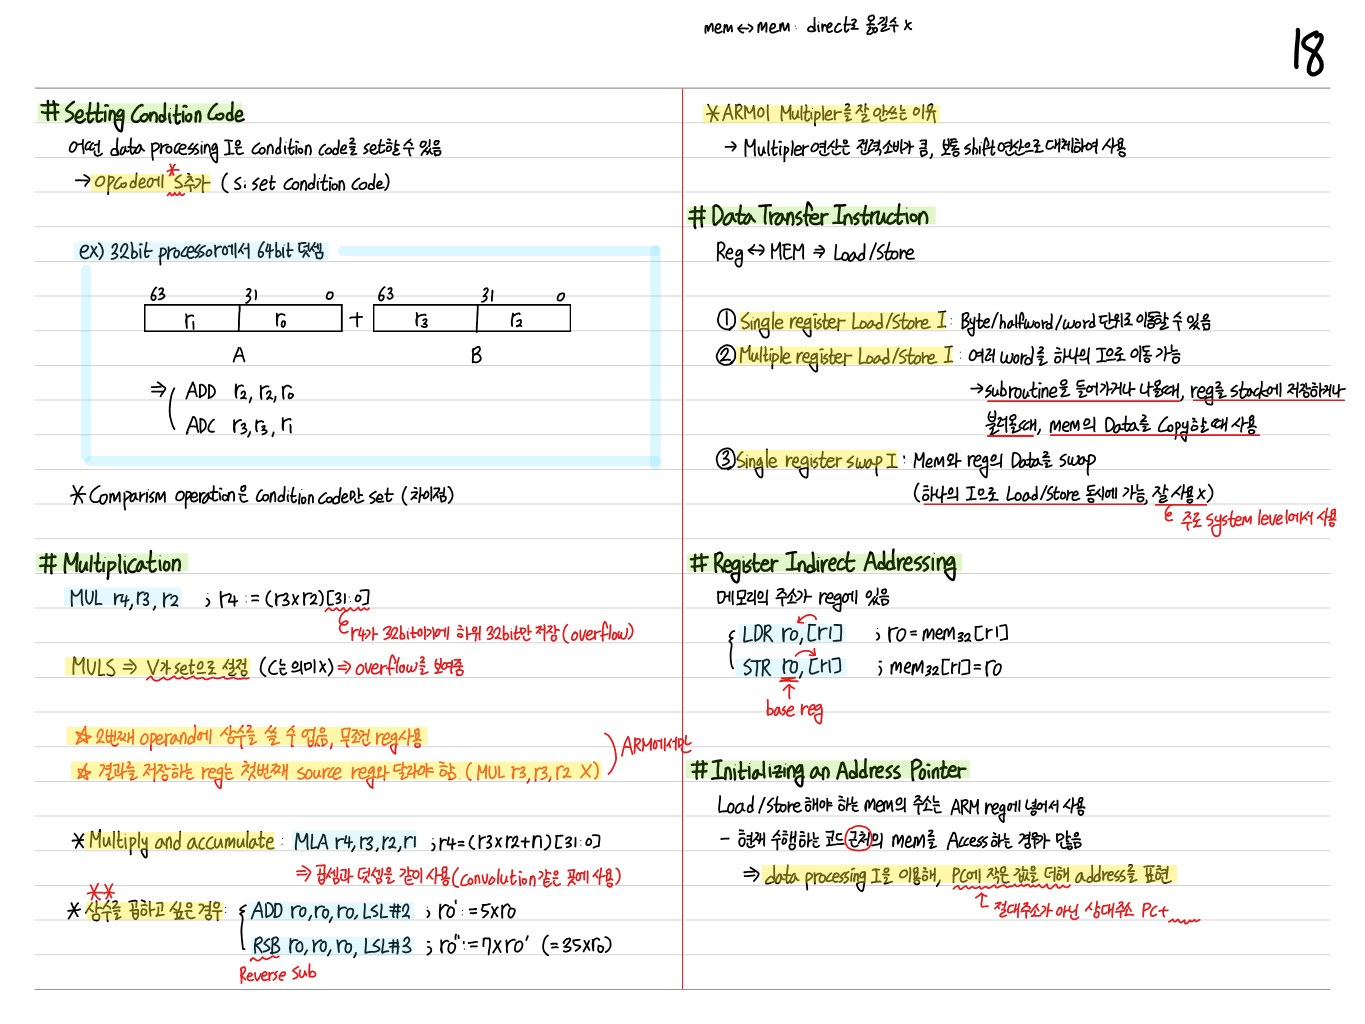 mem ↔ mem : direct로 옮길수 x
18
# Setting Condition Code
어떤 data processing I은 condition code를 set할 수 있음
→ opcode에 *S추가 ( S: set condition code)
ex) 32bit processor에서 64bit 덧셈
63 31 0 63 31 0
r1 r0 + r3 r2
A B
⇒ ADD r2, r2, r0
ADC r3, r3, r1
* Comparism operation은 condition code만 set (차이점)
# Multiplication
MUL r4, r3, r2 ; r4 := (r3xr2)[31:0]
r4가 32bit이기에 하위 32bit만 저장 (overflow)
MULS ⇒ V가 set으로 설정 (C는 의미 X) ⇒ overflow를 보여줌
☆ 2번째 operand에 상수를 쓸 수 없음, 무조건 reg사용
☆ 결과를 저장하는 reg는 첫번째 source reg와 달라야 함 ( MUL r3, r3, r2 X )
ARM에서만
* Multiply and accumulate : MLA r4, r3, r2, r1 ; r4 = (r3xr2+r1)[31:0]
⇒ 곱셈과 덧셈을 같이 사용 (Convolution같은 곳에 사용)
**
* 상수를 곱하고 싶은 경우 : ADD r0, r0, r0, LSL#2 ; r0' := 5xr0
RSB r0, r0, r0, LSL#3 ; r0'' := 7xr0' (=35xr0)
Reverse Sub
* ARM이 Multipler를 잘 안쓰는 이유
→ Multipler연산은 전력소비가 큼, 보통 shift연산으로 대체하여 사용
# Data Transfer Instruction
Reg ↔ MEM ⇒ Load/Store
① Single register Load/Store I : Byte/halfword/word 단위로 이동할 수 있음
② Multiple register Load/Store I : 여러 word를 하나의 I으로 이동 가능
→ subroutine을 들어가거나 나올때, reg를 stack에 저장하거나
불러올때, mem의 Data를 Copy할 때 사용
③ Single register swap I : Mem와 reg의 Data를 swap
(하나의 I으로 Load/Store 동시에 가능, 잘 사용 X)
주로 system level에서 사용
# Register Indirect Addressing
메모리의 주소가 reg에 있음
LDR r0, [r1] ; r0 = mem32[r1]
STR r0, [r1] ; mem32[r1] = r0
base reg
# Initializing an Address Pointer
Load/Store 해야 하는 mem의 주소는 ARM reg에 넣어서 사용
- 현재 수행하는 코드 근처의 mem를 Access하는 경우가 많음
⇒ data processing I을 이용해, PC에 작은 값을 더해 address를 표현
절대주소가 아닌 상대주소 PC+